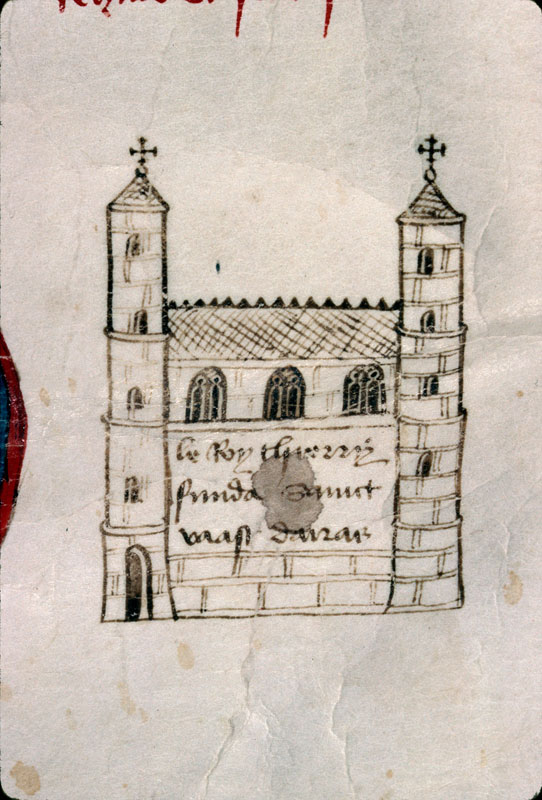 le Roy thierry
funda Sainct
vaast darras